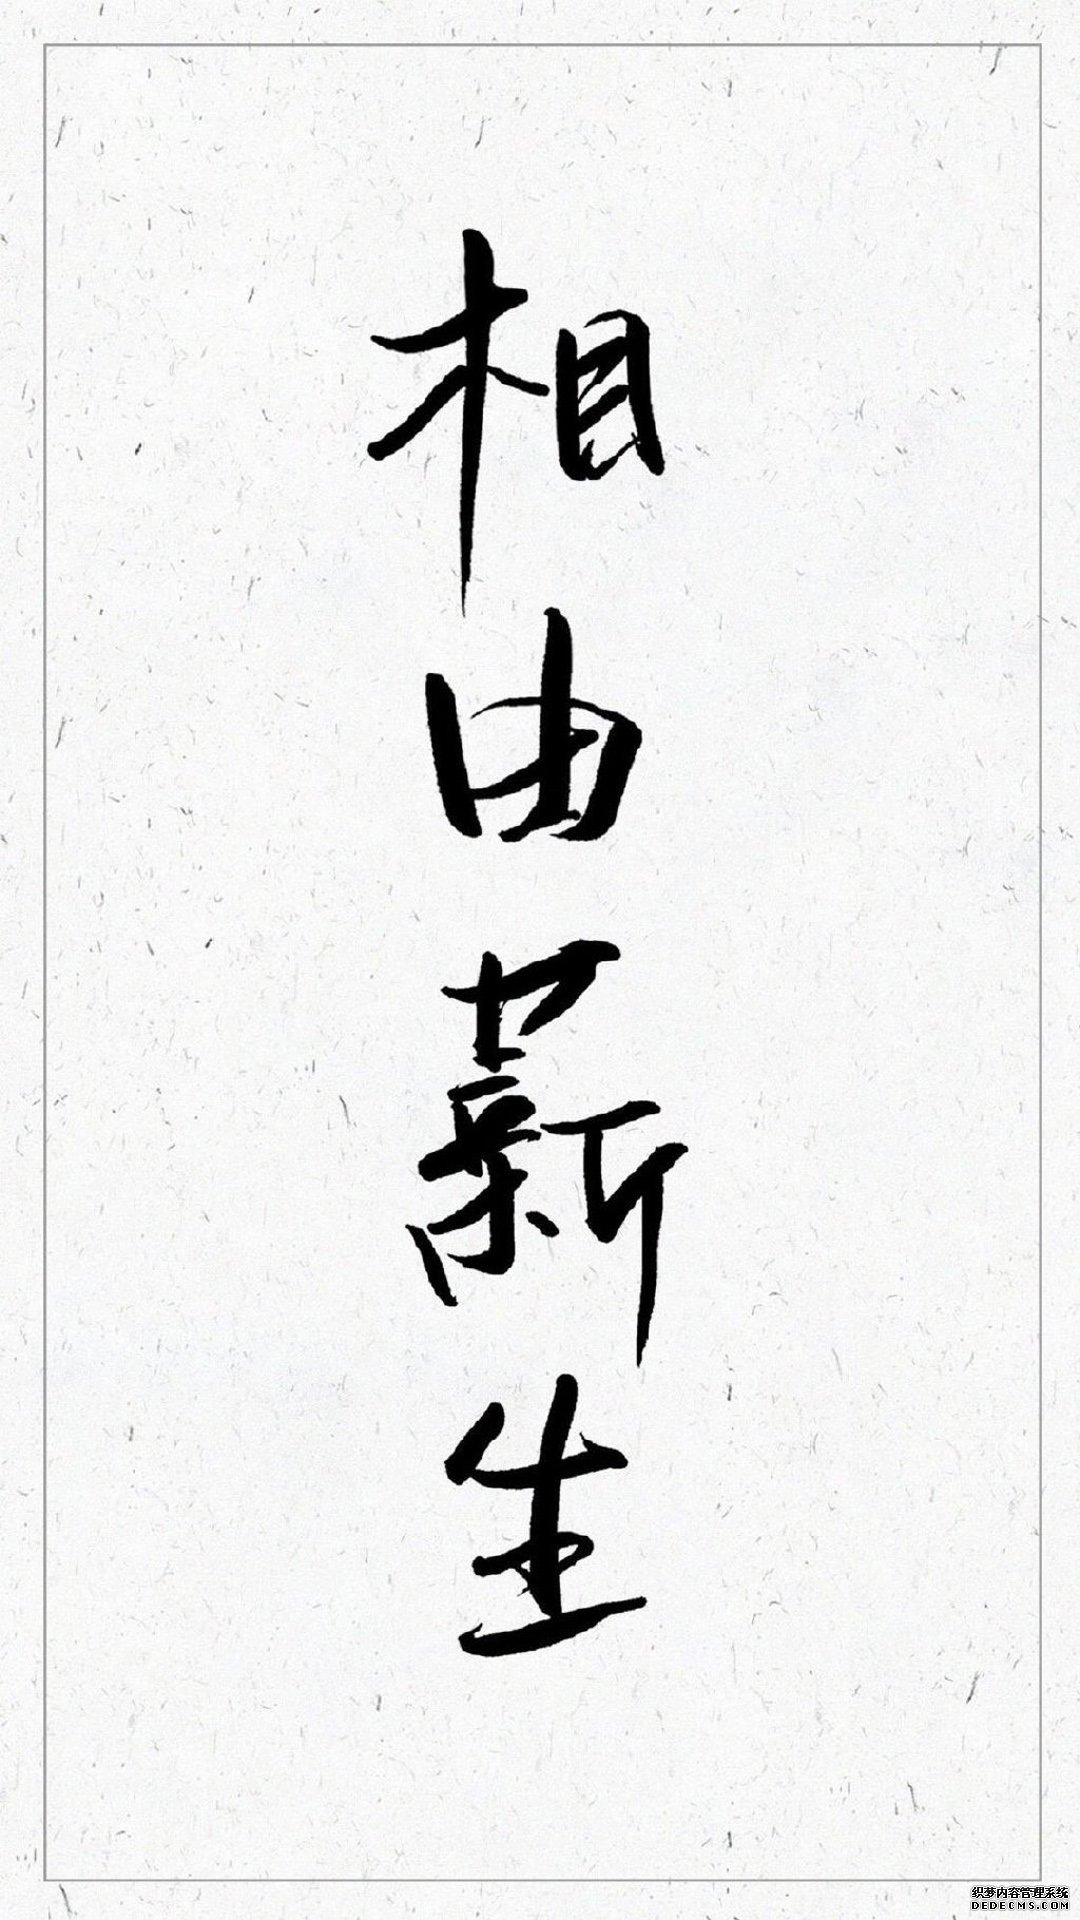 相由薪生
织梦内容管理系统
DEDECMS.COM